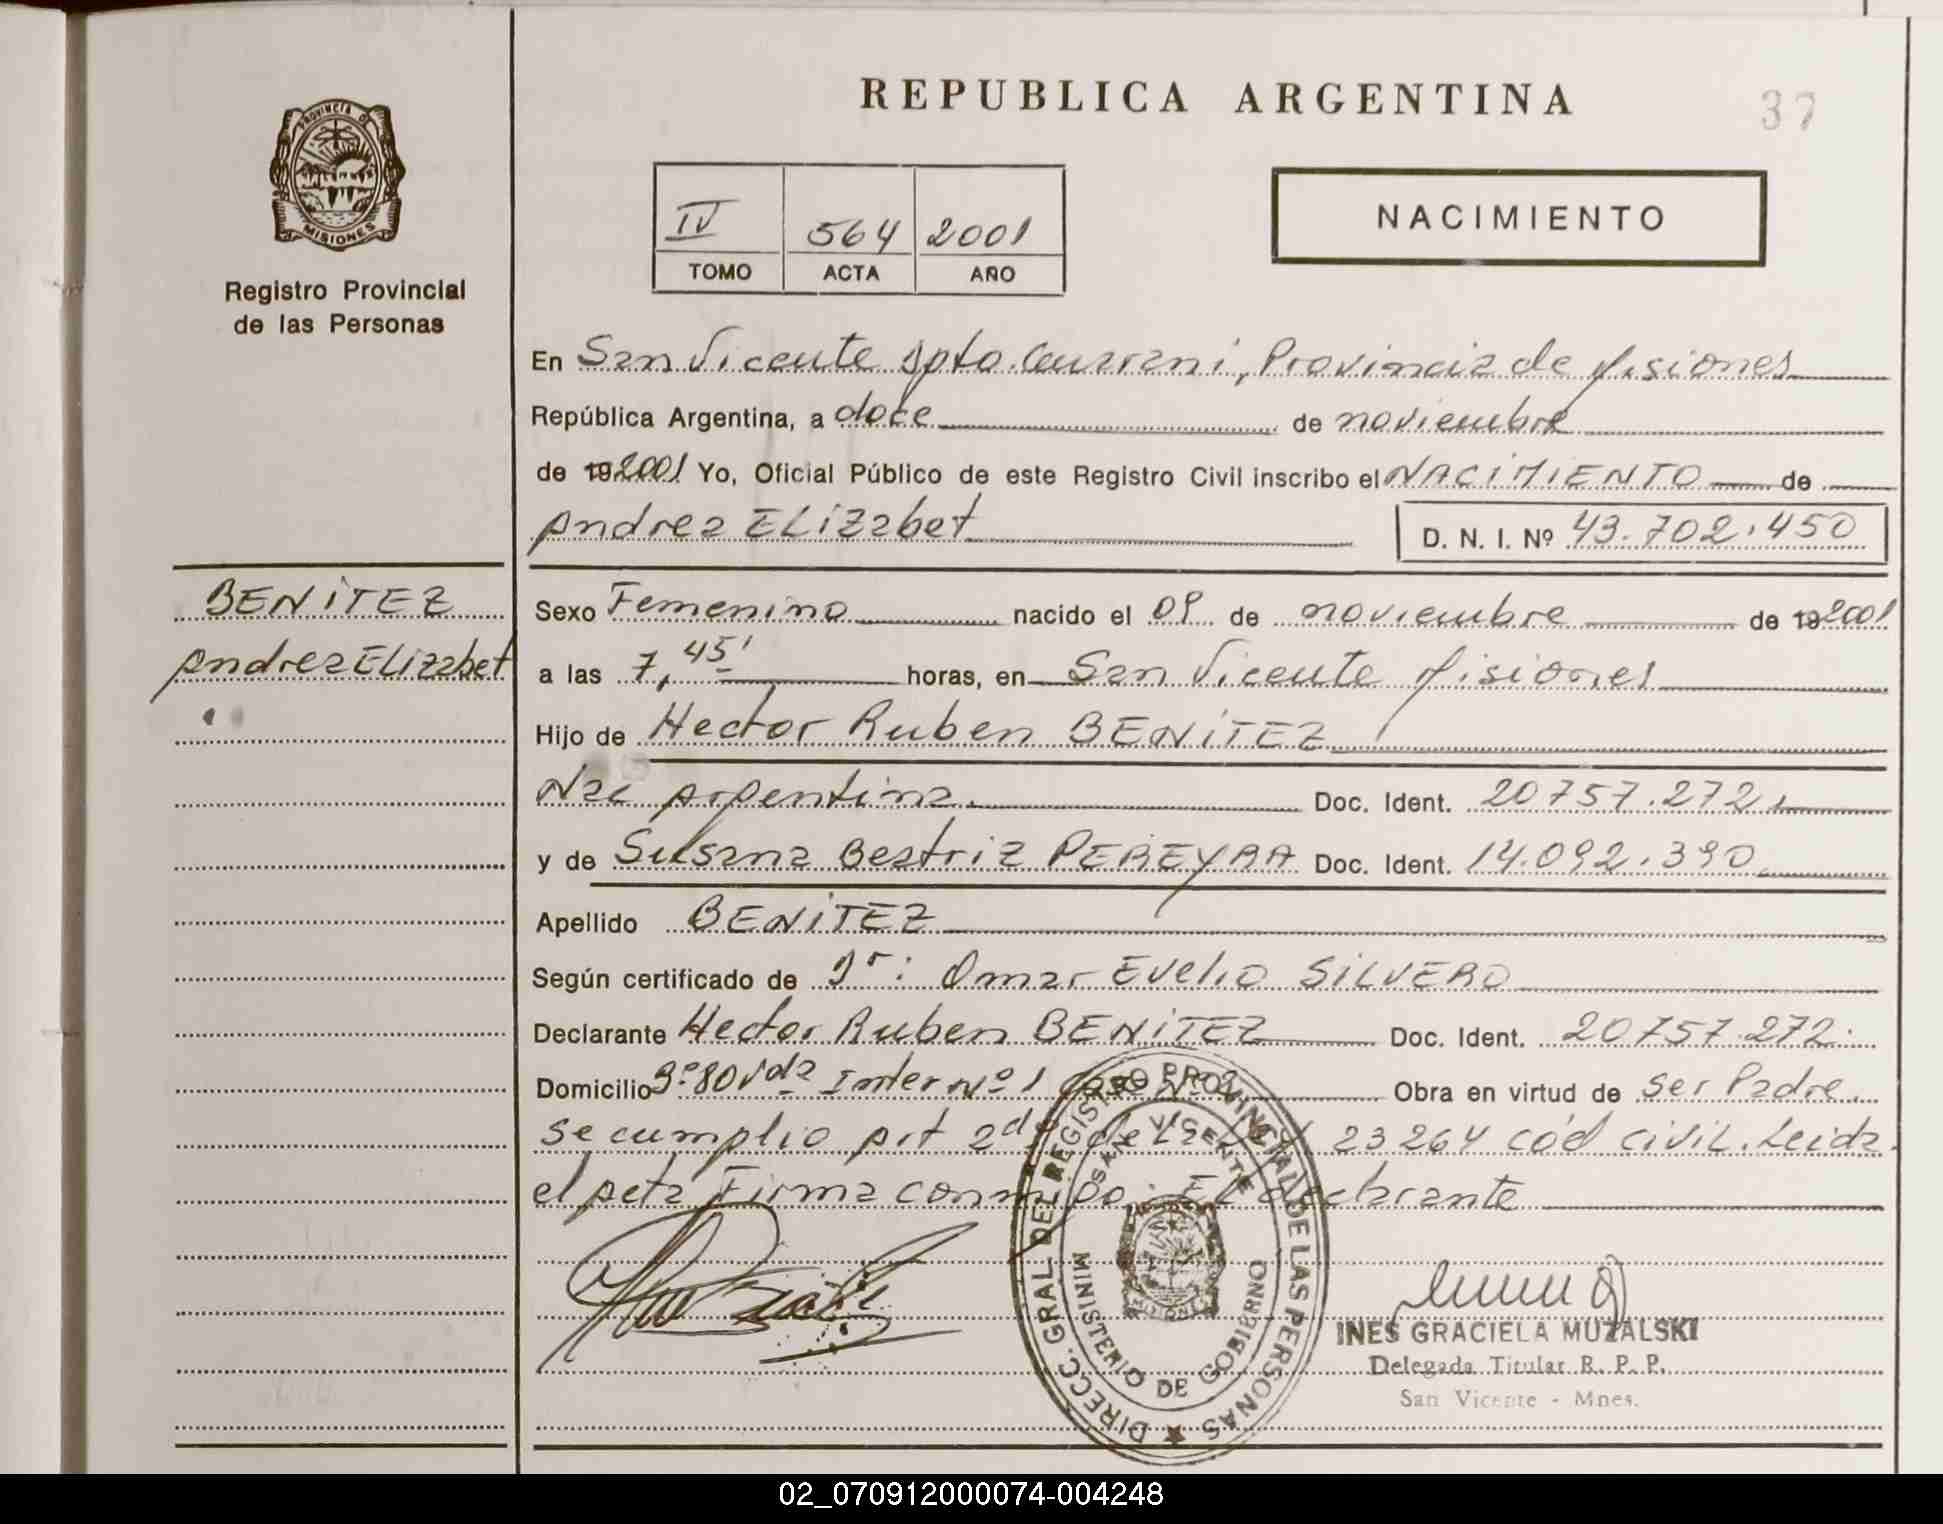 REPUBLICA ARGENTINA
37
PROVINCIA D
MISIONES
Registro Provincial
de las Personas
IV 564 2001
TOMO ACTA AÑO
NACIMIENTO
En San Vicente Dpto. Guarani, Provincia de Misiones
República Argentina, a doce de noviembre
de 19 2001 Yo, Oficial Público de este Registro Civil inscribo el NACIMIENTO de
Andrea ELizabet
D. N. I. Nº 43.702.450
BENITEZ
Andrea ELizabet
Sexo Femenino nacido el 09 de noviembre de 19 2001
a las 7,45' horas, en San Vicente Misiones
Hijo de Hector Ruben BENITEZ
Nac Argentina. Doc. Ident. 20757.272
y de Susana Beatriz PEREYRA Doc. Ident. 14.092.390
Apellido BENITEZ
Según certificado de Dr: Omar Evelio SILVERO
Declarante Hector Ruben BENITEZ Doc. Ident. 20757.272.
Domicilio Bº 80 Vda Inter Nº 1 Nº 2 Obra en virtud de ser Padre.
se cumplio Art 2do de la Ley 23264 cód civil. Leida
el Acta Firma conmigo. El declarante
DIRECC. GRAL DEL REGISTRO PROVINCIAL DE LAS PERSONAS
SAN VICENTE
MISIONES
MINISTERIO DE GOBIERNO
INES GRACIELA MUZALSKI
Delegada Titular R. P. P.
San Vicente - Mnes.
02_070912000074-004248